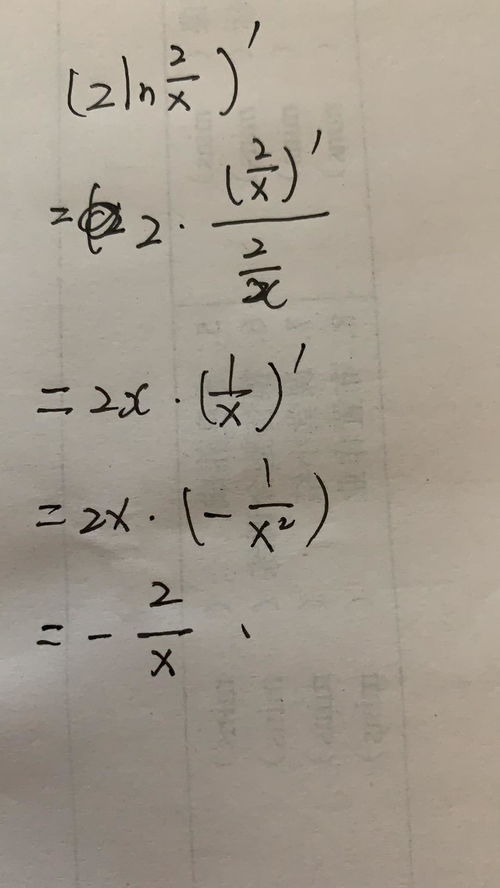 (2ln 2/x)'
= 2 · (2/x)' / (2/x)
= 2x · (1/x)'
= 2x · (- 1/x²)
= - 2/x .